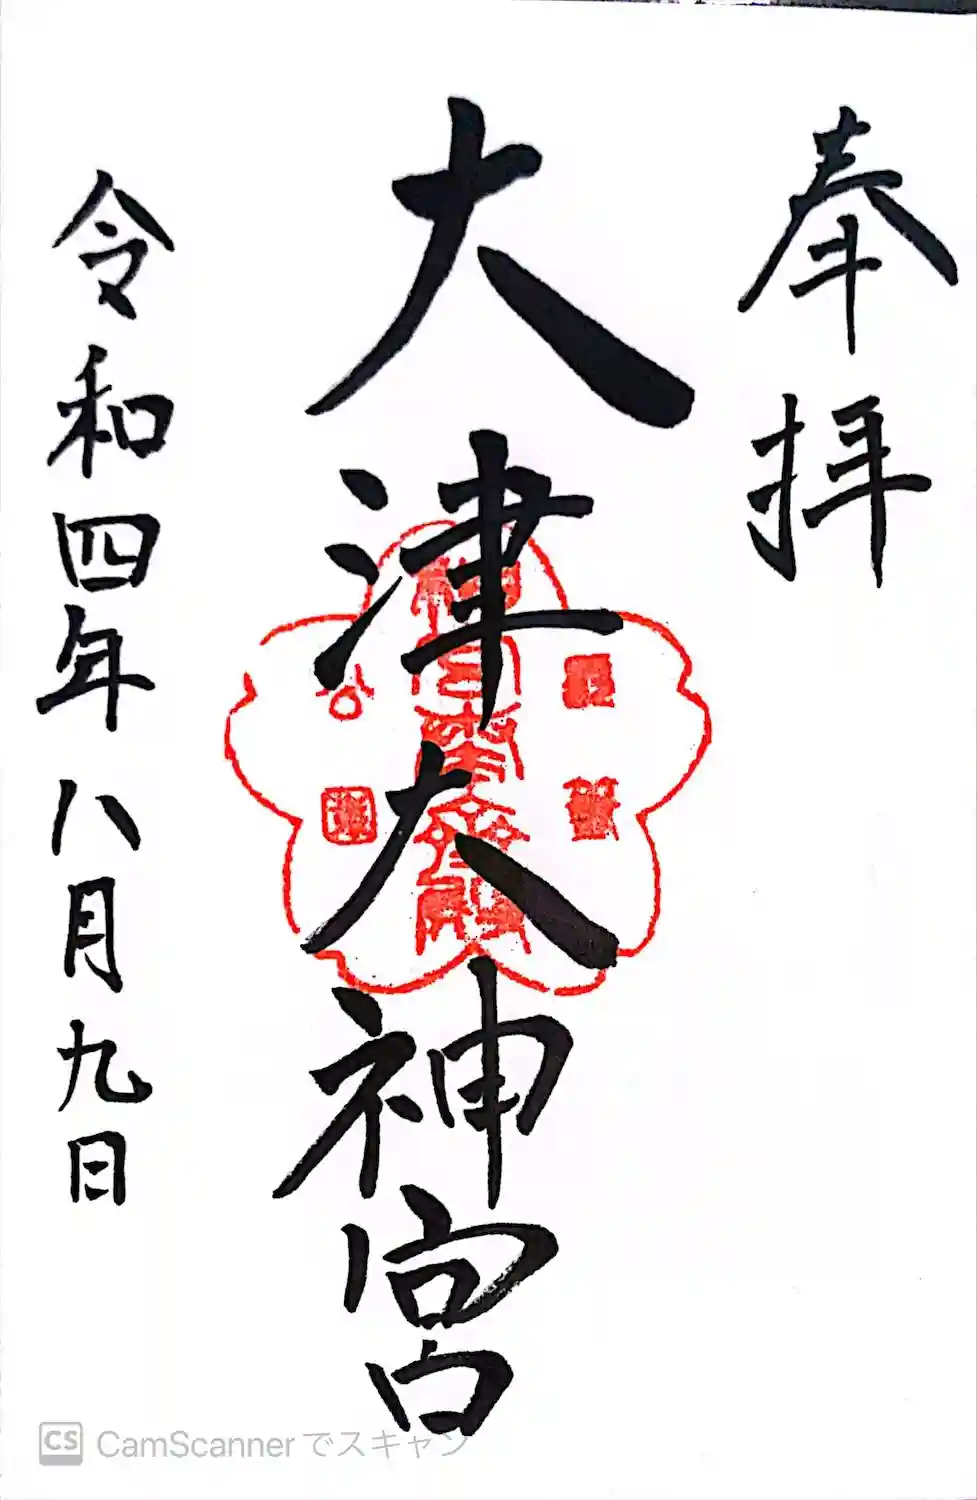 奉拝
大津大神宮
令和四年八月九日
CS CamScannerでスキャン